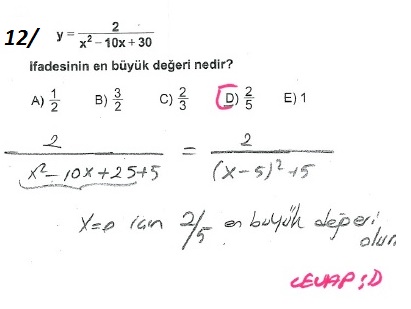 12/ y = 2 / (x² - 10x + 30)
ifadesinin en büyük değeri nedir?
A) 1/2 B) 3/2 C) 2/3 D) 2/5 E) 1
2 / (x² - 10x + 25 + 5) = 2 / ((x - 5)² + 5)
x=0 için 2/5 en büyük değeri
olur
CEVAP: D